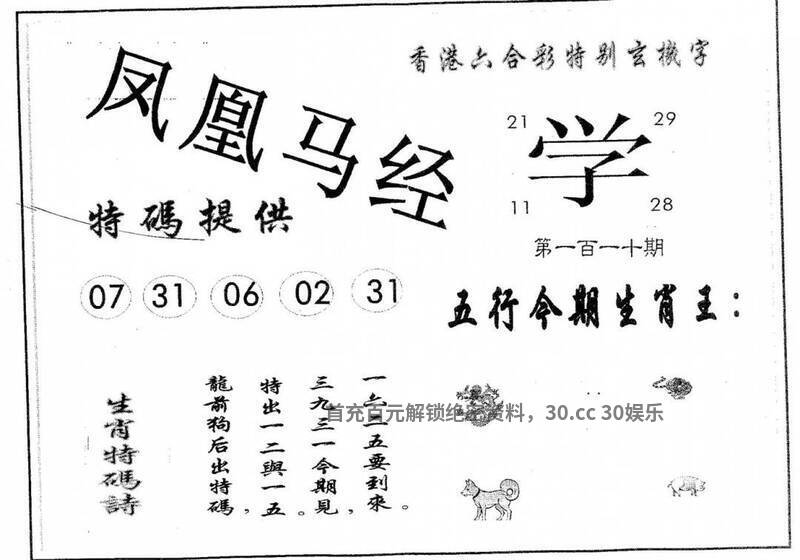 香港六合彩特别玄機字
凤凰马经
21 29
学
11 28
特碼提供
第一百一十期
07 31 06 02 31
五行今期生肖王：
生肖特碼詩
一六二五要到來。
三九三一今期見，
特出一二與一五。
龍前狗后出特碼，
首充百元解锁绝密资料，30.cc 30娱乐